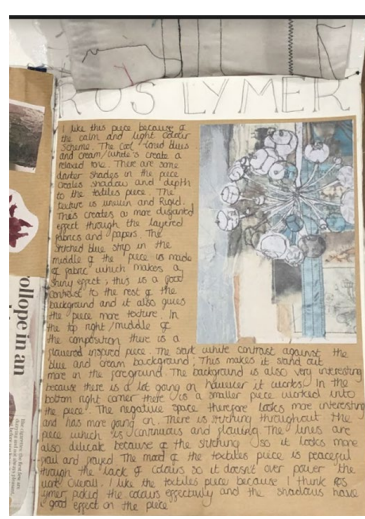 ROS LYMER
I like this piece because of
the calm and light colour
Scheme. The cool toned blues
and cream/white's create a
relaxed tone. There are some
darker shades in the piece
creates shadow and depth
to the textiles piece. The
texture is uneven and Rigid.
This creates a more disjointed
effect through the layered
fabrics and papers. The
stitched blue strip in the
middle of the piece is made
of fabric which makes a
shiny effect, this is a good
contrast to the rest of the
background and it also gives
the piece more texture. In
the top right/middle of
the composition there is a
flowered inspired piece. The soft white contrast against the
blue and cream background. This makes it stand out
more in the foreground. The background is also very interesting
because there is a lot going on however it works. In the
bottom right corner there is a smaller piece worked into
the piece. The negative space therefore looks more interesting
and has more going on. There is stitching throughout the
piece which is continuous and flowing. The lines are
also delicate because of the stitching so it looks more
frail and frayed. The mood of the textiles piece is peaceful
through the lack of colours so it doesn't over power the
Overall. I like the textiles piece because I think Ros
Lymer picked the colours effectively and the shadows have
a good effect on the piece
ollope in an